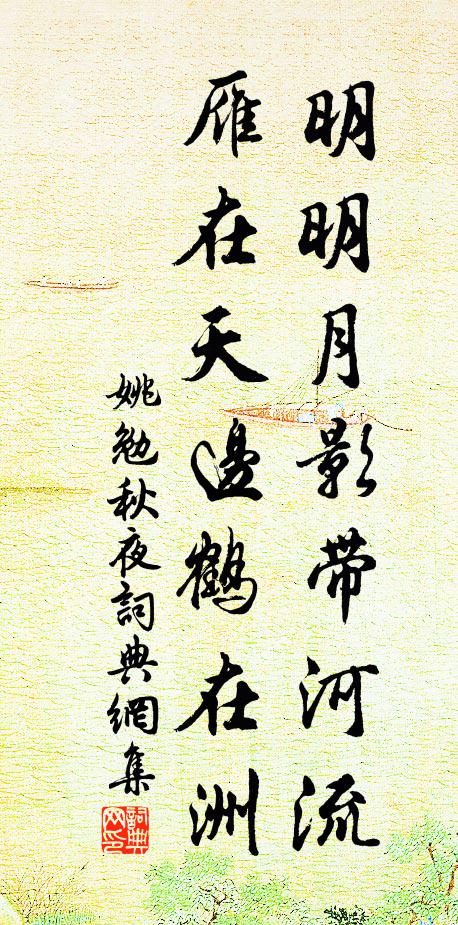 明明月影带河流
雁在天邊鶴在洲
姚勉秋夜詞典網集
詞典网印